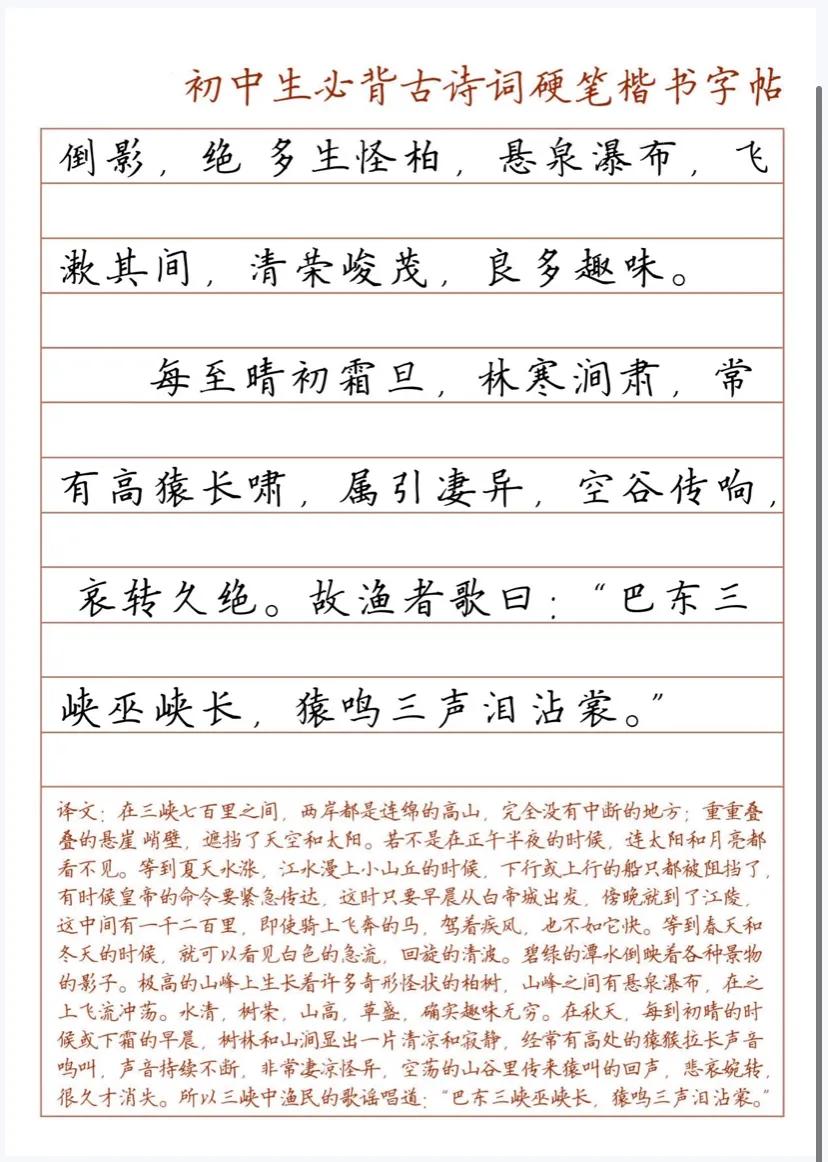 初中生必背古诗词硬笔楷书字帖
倒影，绝 多生怪柏，悬泉瀑布，飞
漱其间，清荣峻茂，良多趣味。
每至晴初霜旦，林寒涧肃，常
有高猿长啸，属引凄异，空谷传响，
哀转久绝。故渔者歌曰：“巴东三
峡巫峡长，猿鸣三声泪沾裳。”
译文：在三峡七百里之间，两岸都是连绵的高山，完全没有中断的地方；重重叠
叠的悬崖 峭壁，遮挡了天空和太阳。若不是在正午半夜的时候，连太阳和月亮都
看不见。等到夏天水涨，江水漫上小山丘的时候，下行或上行的船只都被阻挡了，
有时候皇帝的命令要紧急传达，这时只要早晨从白帝城出发，傍晚就到了江陵，
这中间有一千二百里，即使骑上飞奔的马，驾着疾风，也不如它快。等到春天和
冬天的时候，就可以看见白色的急流，回旋的清波。碧绿的潭水倒映着各种景物
的影子。极高的山峰上生长着许多奇形怪状的柏树，山峰之间有悬泉瀑布，在之
上飞流冲荡。水清，树荣，山高，草盛，确实趣味无穷。在秋天，每到初晴的时
候或下霜的早晨，树林和山涧显出一片清凉和寂静，经常有高处的猿猴拉长声音
鸣叫，声音持续不断，非常凄凉怪异，空荡的山谷里传来猿叫的回声，悲哀婉转，
很久才消失。所以三峡中渔民的歌谣唱道：“巴东三峡巫峡长，猿鸣三声泪沾裳。”